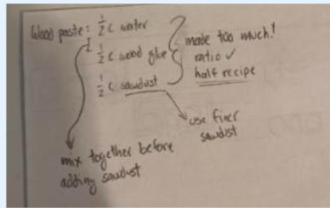 Wood paste: 1/2 c water
1/2 c wood glue
1/2 c sawdust
made too much!
ratio ✓
half recipe
use finer
sawdust
mix together before
adding sawdust